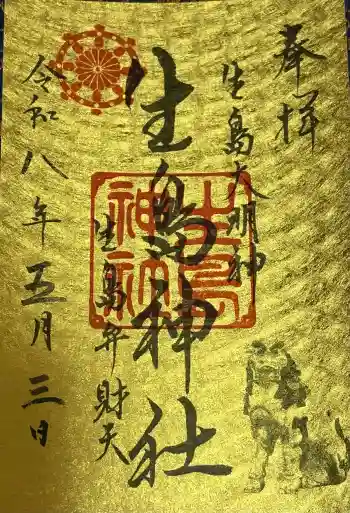 奉拝
生島大明神
生島神社
生島弁財天
令和八年五月三日
生島
神社